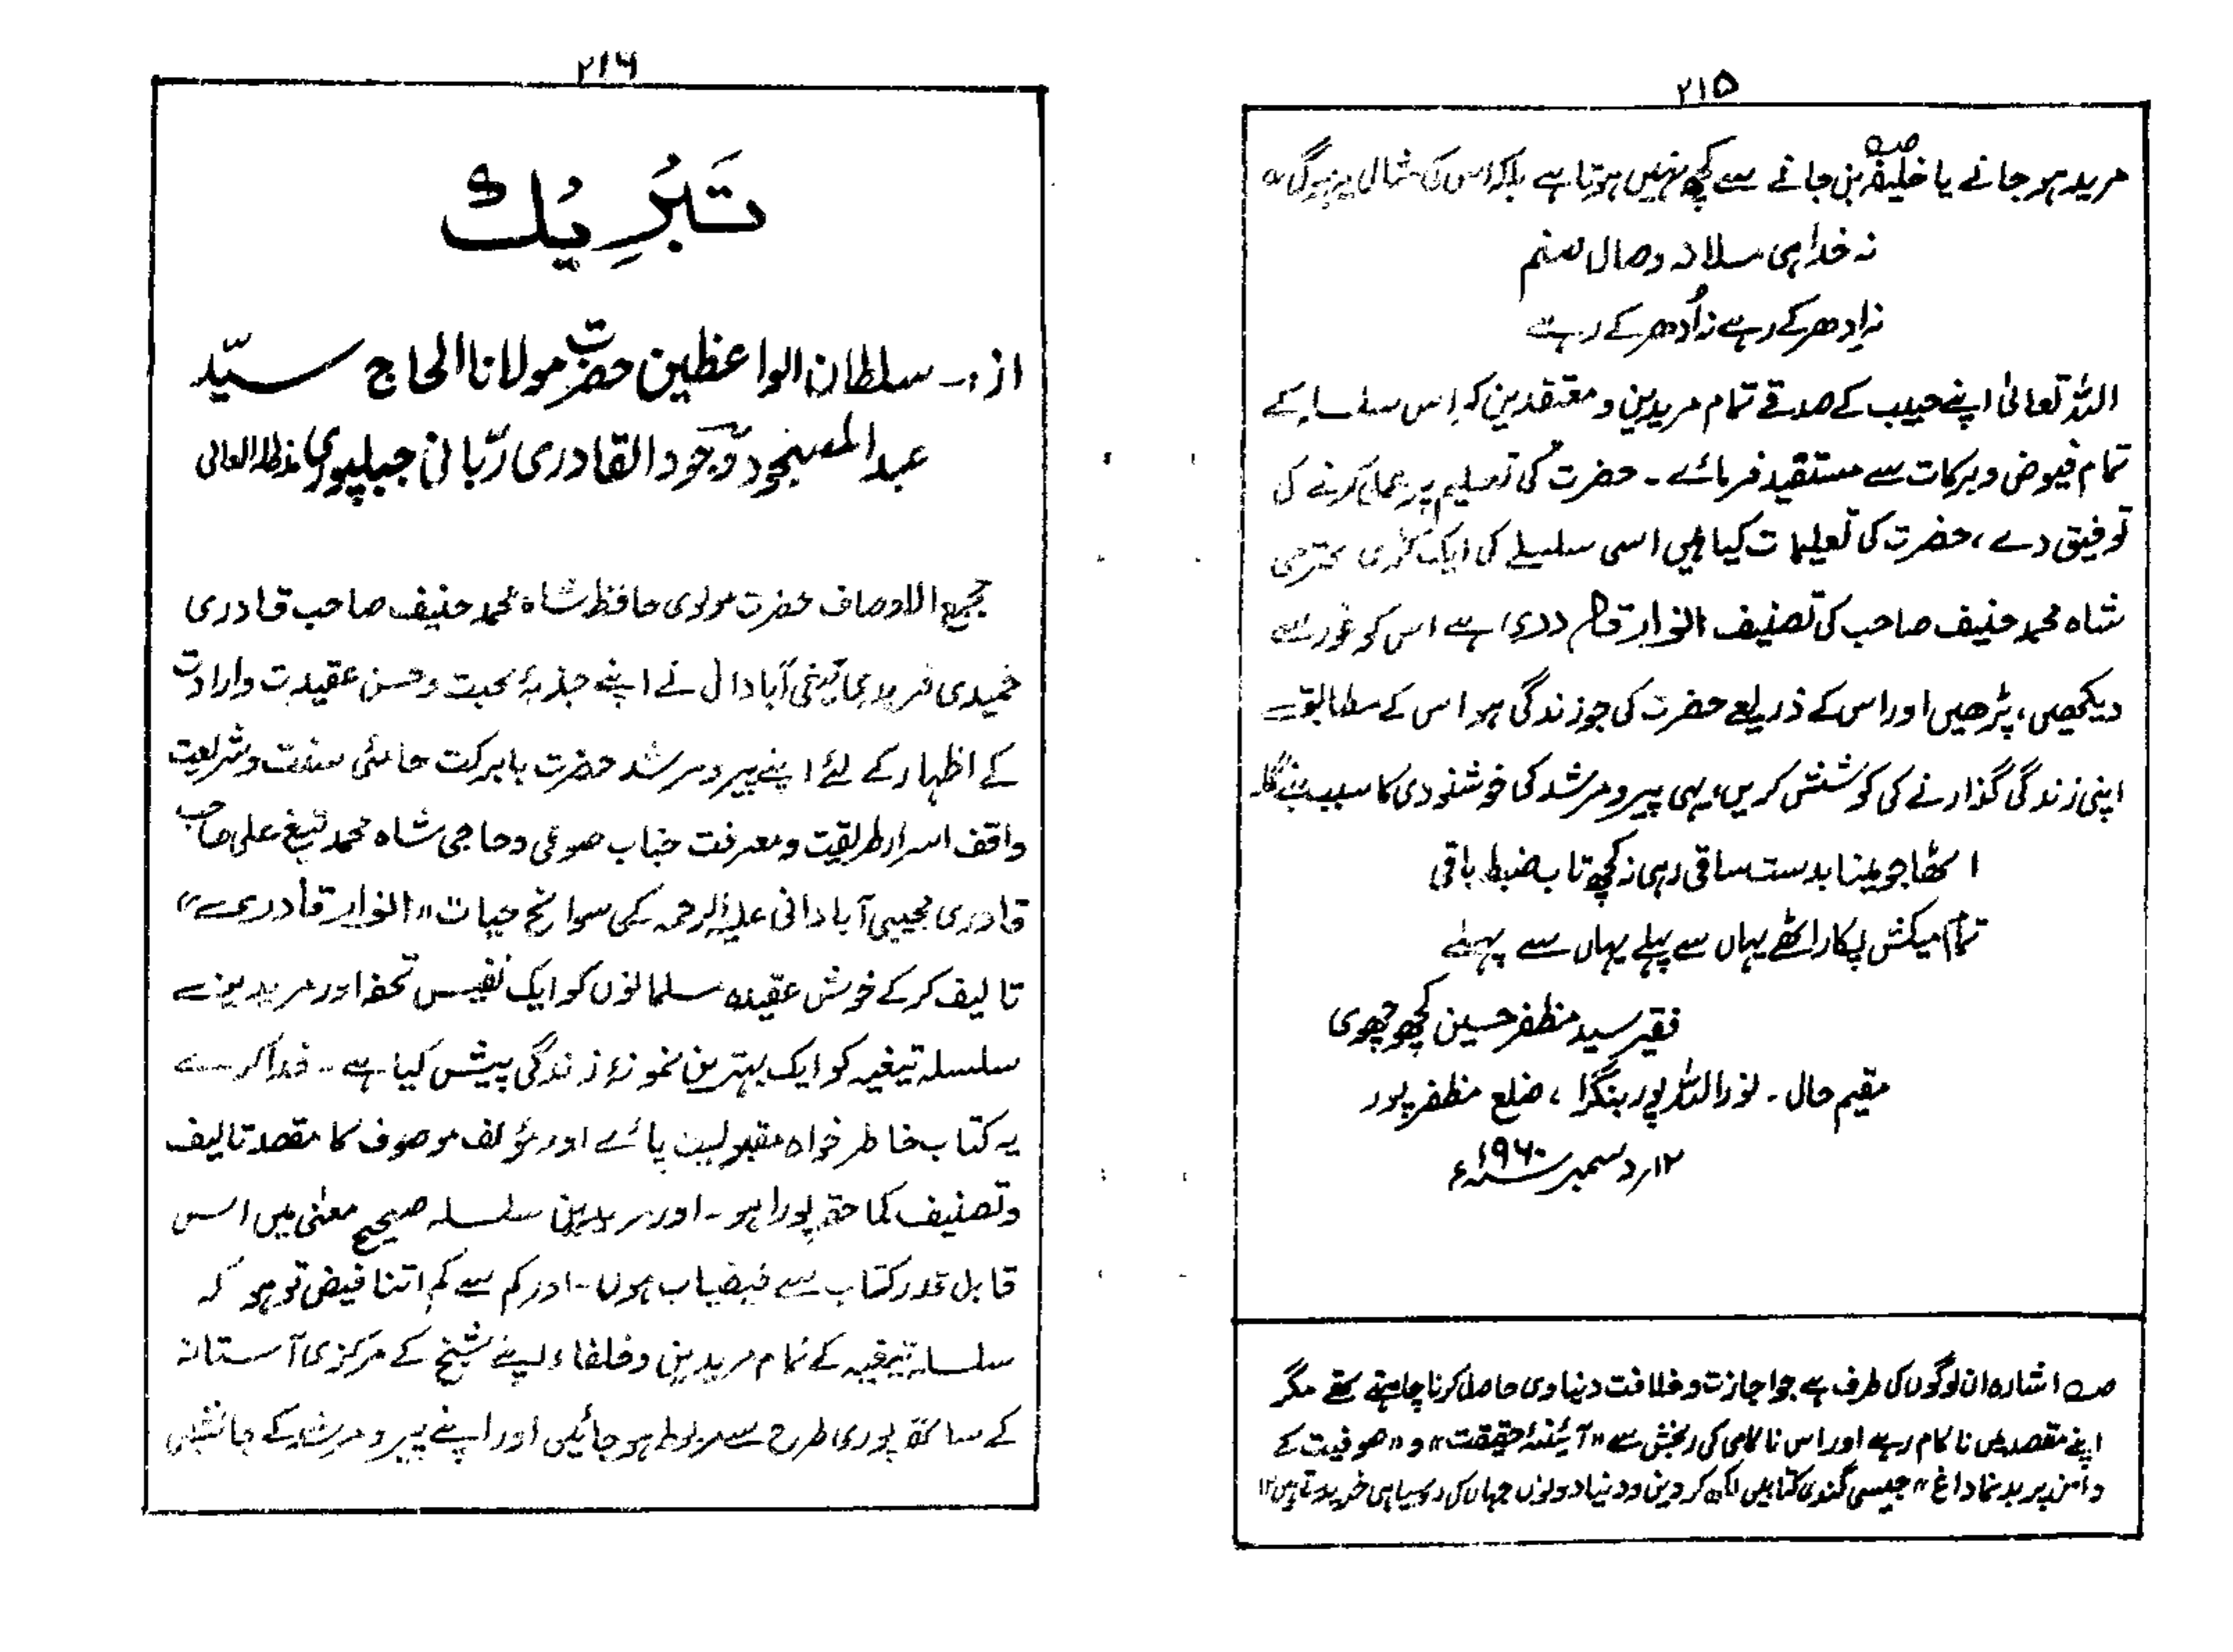 ۲۱۵
مرید ہو جانے یا خلیفہ بن جانے سے کچھ نہیں ہوتا ہے بلکہ اس کی مثال یہ ہوگی ؎
نہ خدا ہی ملا نہ وصال صنم
نہ اِدھر کے رہے نہ اُدھر کے رہے
اللہ تعالیٰ اپنے حبیب کے صدقے تمام مریدین و معتقدین کہ اِس سلسلہ کے
تمام فیوض و برکات سے مستفید فرمائے ۔ حضرت کی تعلیم پر عمل کرنے کی
توفیق دے ، حضرت کی تعلیمات کیا ہیں اسی سلسلے کی ایک کڑی محترمی
شاہ محمد حنیف صاحب کی تصنیف انوار قادری ہے اس کو غور سے
دیکھیں ، پڑھیں اور اس کے ذریعے حضرت کی جو زندگی ہو اس کے مطابق
اپنی زندگی گذارنے کی کوشش کریں، یہی پیر و مرشد کی خوشنودی کا سبب بنے گا۔
اٹھا جو مینا بدست ساقی رہی نہ کچھ تاب ضبط باقی
تمام میکش پکار اٹھے یہاں سے پہلے یہاں سے پہلے
فقیر سید مظفر حسین کچھوچھوی
مقیم حال ۔ نور اللہ پور بنگرا ، ضلع مظفر پور
۱۲؍ دسمبر ۱۹۶۰ء
صہ اشارہ ان لوگوں کی طرف ہے جو اجازت و خلافت دنیاوی حاصل کرنا چاہتے تھے مگر
اپنے مقصد میں ناکام رہے اور اس ناکامی کی رنجش سے "آئینۂ حقیقت" و "صوفیت کے
دامن پر بدنما داغ" جیسی گندی کتابیں لکھ کر دین و دنیا دونوں جہاں کی روسیاہی خرید ہیں ۱۲
۲۱۶
تَبْرِیْک
از :۔ سلطان الواعظین حضرت مولانا الحاج سیّد
عبد المسجود وجود القادری ربّانی جبلپوری مدظلہ العالی
مجمع الاوصاف حضرت مولوی حافظ شاہ محمد حنیف صاحب قادری
حمیدی فریدی تیغی آبادانی نے اپنے جذبۂ محبت و حسن عقیدت و ارادت
کے اظہار کے لئے اپنے پیر و مرشد حضرت بابرکت حامئی سنت و شریعت
واقف اسرار طریقت و معرفت جناب صوفی و حاجی شاہ محمد تیغ علی صاحب
قادری مجیبی آبادانی علیہ الرحمہ کی سوانح حیات "انوار قادری"
تالیف کر کے خوش عقیدہ مسلمانوں کو ایک نفیس تحفہ اور مریدین
سلسلہ تیغیہ کو ایک بہترین نمونۂ زندگی پیش کیا ہے ۔ خدا کرے
یہ کتاب خاطر خواہ مقبولیت پائے اور مؤلف موصوف کا مقصد تالیف
و تصنیف کما حقہ پورا ہو ۔ اور مریدین سلسلہ صحیح معنی میں اس
قابل قدر کتاب سے فیضیاب ہوں ۔ اور کم سے کم اتنا فیض تو ہو کہ
سلسلہ تیغیہ کے تمام مریدین و خلفاء اپنے شیخ کے مرکزی آستانہ
کے ساتھ پوری طرح سے مربوط ہو جائیں اور اپنے پیر و مرشد کے جانشین